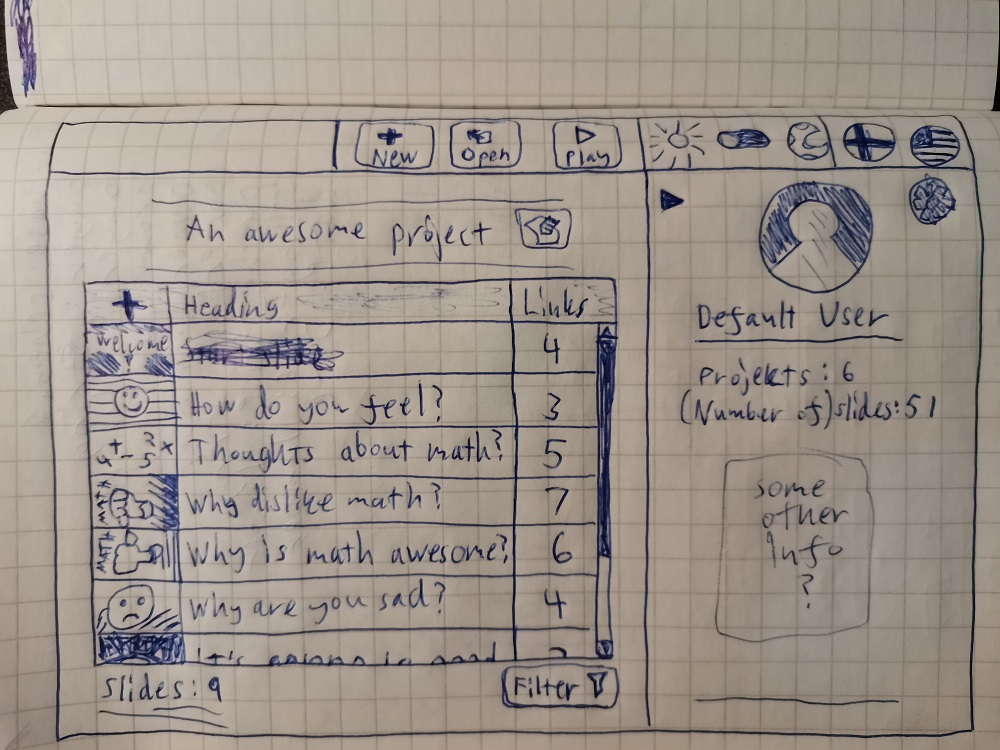 New
Open
Play
An awesome project
Heading
Links
Welcome
4
How do you feel?
3
Thoughts about math?
5
Why dislike math?
7
Why is math awesome?
6
Why are you sad?
4
Slides: 9
Filter
Default User
Projekts: 6
(Number of) slides: 51
some
other
info
?